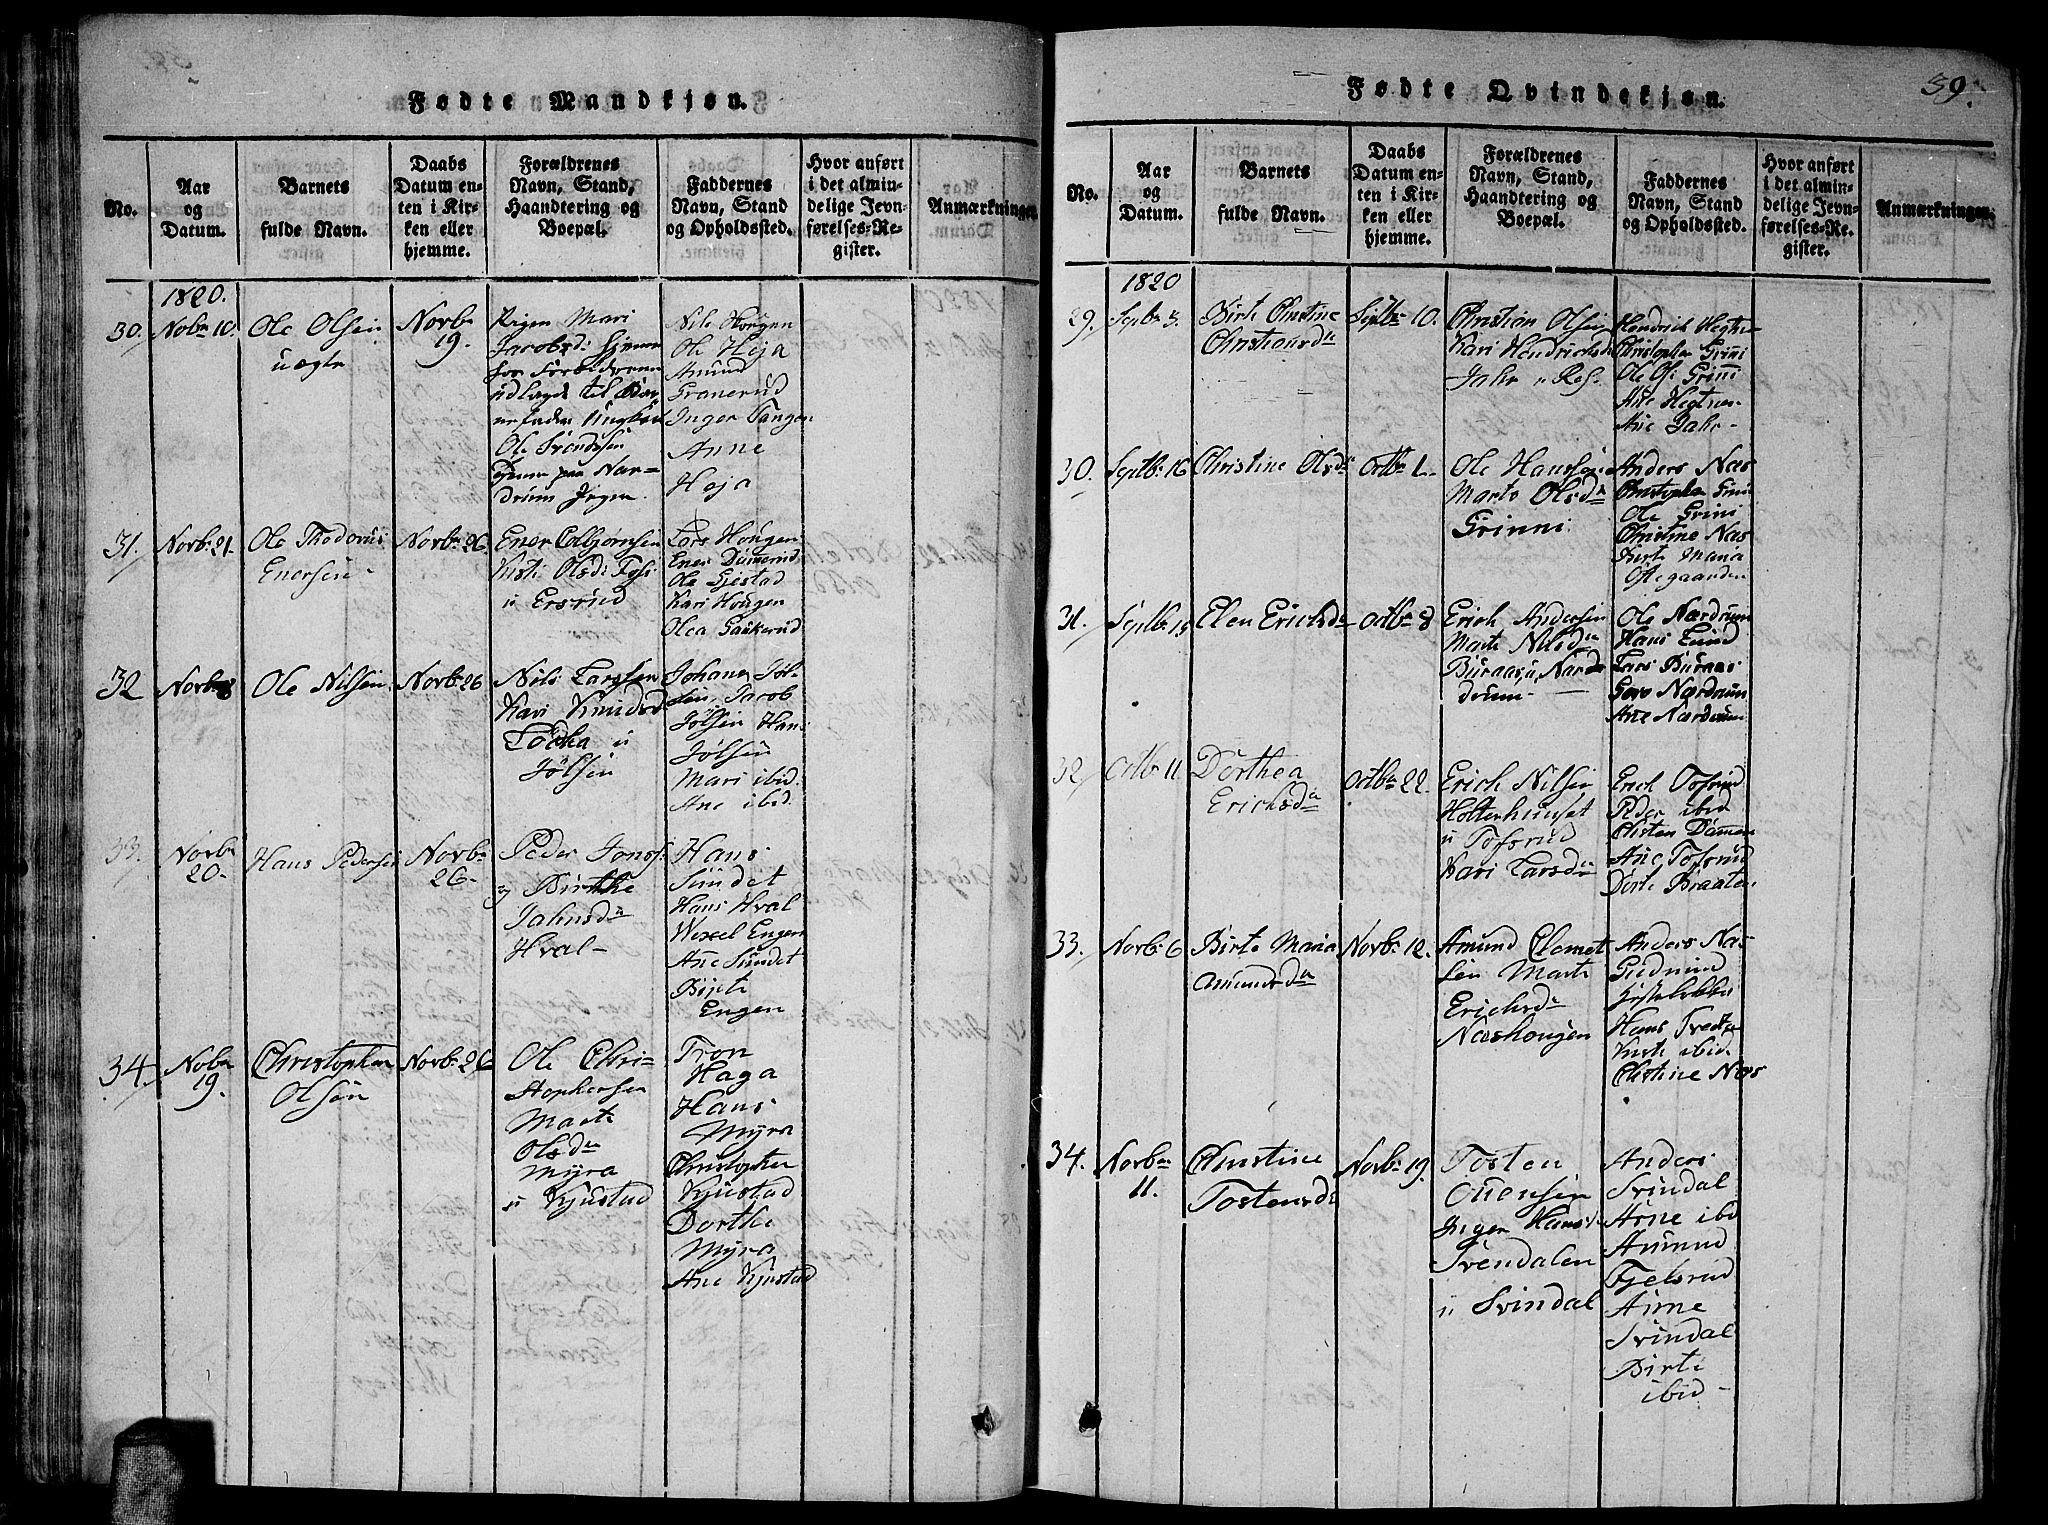 Fødte Mandkjøn.
No.
Aar
og
Datum.
Barnets
fulde Navn.
Daabs
Datum en-
ten i Kir-
ken eller
hjemme.
Forældrenes
Navn, Stand,
Haandtering og
Boepæl.
Faddernes
Navn, Stand
og Opholdssted.
Hvor anført
i det almin-
delige Jevn-
førelses-Re-
gister.
Anmærkninger.
1820.
30.
Nobr 10.
Ole Olsen
uægte
Novbr
19.
Pigen Mari
Jacobsdr hjemme
udlagde til
Ole Svendssen
paa Nar-
drum
Nils Hougen
Ole Heja
Amund
Granerud
Inger Tangen
Anne
Heja
31.
Novbr 21.
Ole Thodorus
Enersen
Novbr 26.
Ener Colbjørnsen
Kisti Olsdr Fossi
u Ersrud
Lars Hougen
Ener
Ole Gjestad
Kari Hougen
Olea Gaukerud
32
Novbr
Ole Nilsen
Novbr 26
Nils Larssen
Kari Knudsd
u
Jølsen
Johanes Jøl-
sen, Jacob
Jølsen Hans
Jølsen
Mari ibid.
Ane ibid.
33.
Novbr
20.
Hans Pedersen
Novbr
26.
Peder Jonss:
Birthe
Jahnsdr
Hval
Hans
Sundet
Hans Hval
Wexel Engen
Ane Sundet
Birte
Engen
34.
Nobr
19.
Christopher
Olsen
Novbr 26
Ole Chri-
stophersen
Marte
Olsdr
Myra
u Kjustad
Tron
Haga
Hans
Myra
Christopher
Kjustad
Dorthe
Myra
Ane Kjustad
Fødte Qvindekjøn.
39.
No.
Aar
og
Datum.
Barnets
fulde Navn.
Daabs
Datum en-
ten i Kir-
ken eller
hjemme.
Forældrenes
Navn, Stand,
Haandtering og
Boepæl.
Faddernes
Navn, Stand
og Opholdssted.
Hvor anført
i det almin-
delige Jevn-
førelses-Re-
gister.
Anmærkninger.
1820
29.
Septbr 3.
Birte Christine
Christiansdr
Septbr 10.
Christian Olsen
Kari Hendrichsdr
Jahr
Hendrich Hegtne
Christopher Grini
Ole Grini
Ane Hegtner
Ane Jahr
30.
Septbr 16
Christine Olsdr
Octbr 1.
Ole Hanssen
Marte Olsdr
Grinni
Anders Nas
Christopher Grini
Ole Grini
Christine Nas
Birte Maria
Ostegaarden
31.
Septbr 15
Elen Erichsdr
Octbr 8
Erich Andersen
Marte Nilsdr
Buraas u Nar-
drum
Ole Nardrum
Hans Lund
Lars Buraas
Goro Nardrum
Ane Nardrum
32.
Octbr 11
Dorthea
Erichsdr
Octbr 22.
Erich Nilsen
Holterhuuset
u Tofsrud
Kari Larsdr
Erich Tofsrud
Peder ibid
Christen Dammen
Ane Tofsrud
Dorte Braaten
33.
Novbr 6
Birte Maria
Amundsdr
Novbr 12.
Amund Clemet-
sen Marte
Erichsdr
Nashougen
Anders Nas
Gudmund
Hans Tvedt
Kisti ibid
Christine Nas
34.
Novbr
11.
Christine
Tostensdr
Novbr 19.
Tosten
Ouensen
Inger Hansdr
Svendalen
u Svindal
Anders
Svindal
Arne ibid
Amund
Fjelsrud
Anne
Svindal
Birte
ibid